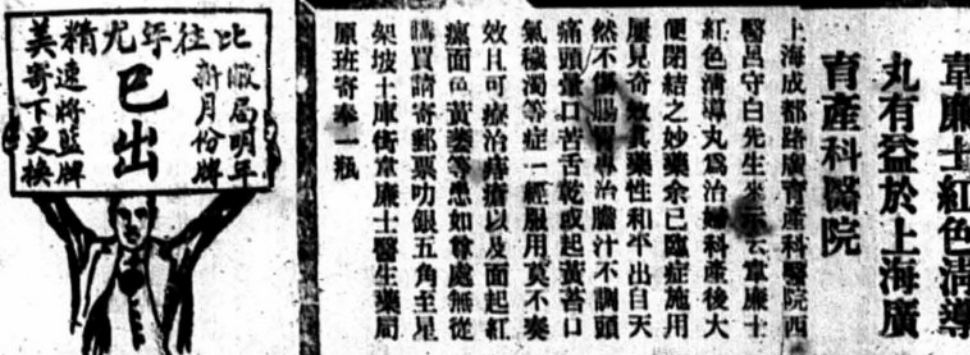 韋廉士紅色清導
丸有益於上海廣
育產科醫院
上海成都路廣育產科醫院西
醫呂守白先生來示云韋廉士
紅色清導丸爲治婦科產後大
便閉結之妙藥余已臨症施用
屢見奇效其藥性和平出自天
然不傷腸胃專治膽汁不調頭
痛頭暈口苦舌乾或起黃苔口
氣穢濁等症一經服用莫不奏
效且可療治痔瘡以及面起紅
面色黃萎等患如尊處無從
購買請寄郵票叻銀五角至星
架坡土庫街韋廉士醫生藥局
原班寄奉一瓶
比往年尤精美
敝局明年
新月份牌
已出
速將藍牌
寄下更換